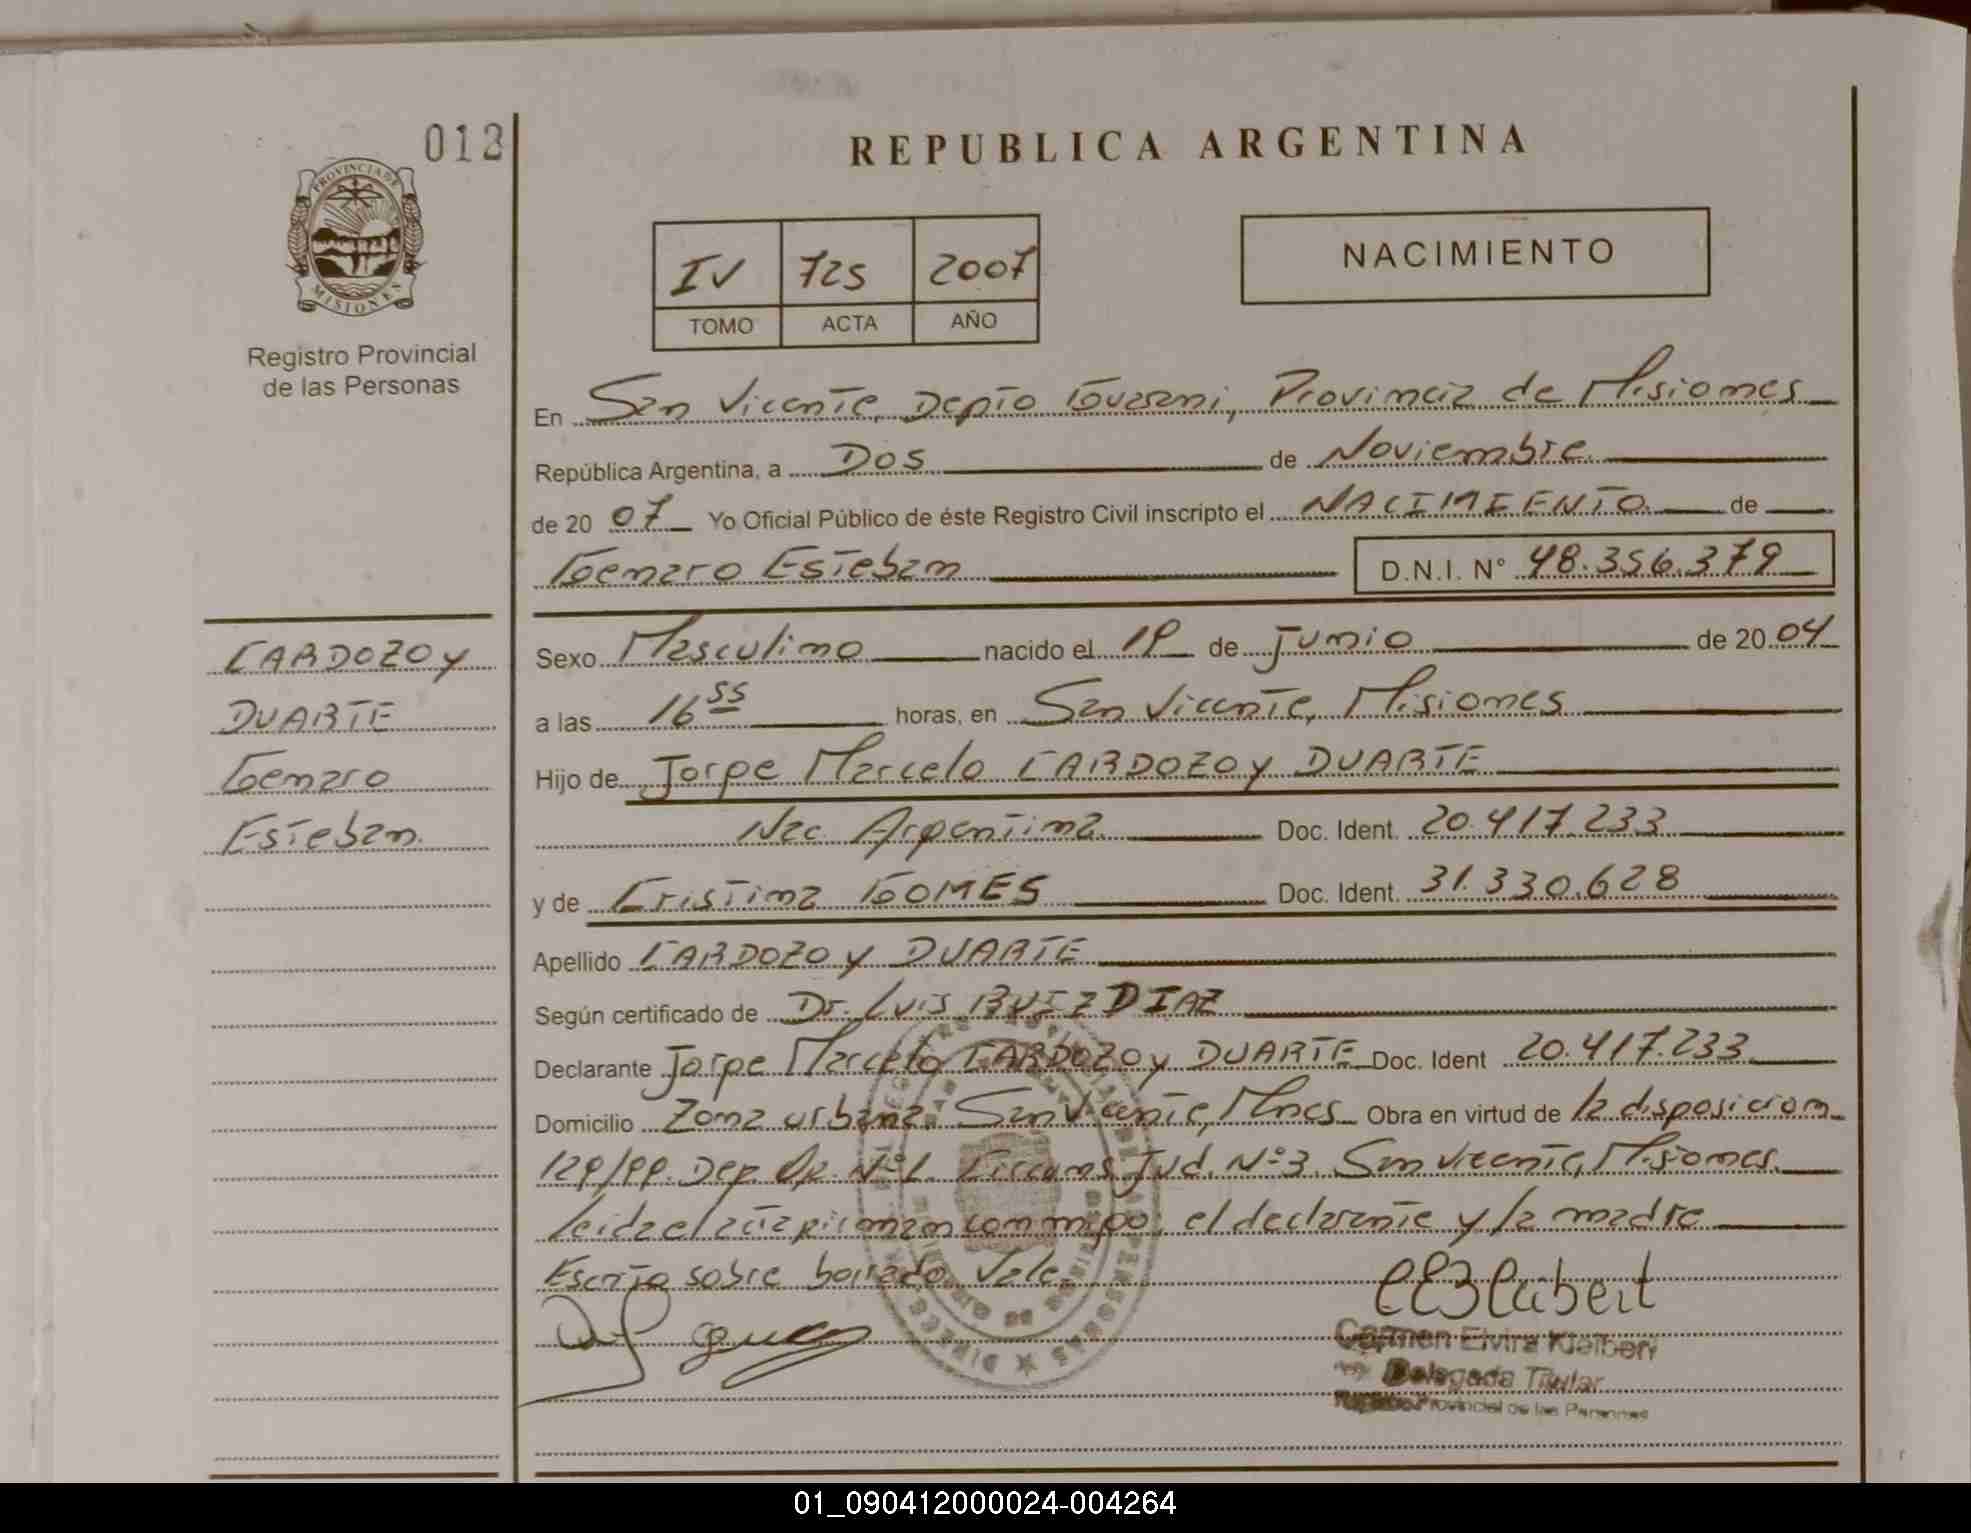 012
REPUBLICA ARGENTINA
PROVINCIA DE
MISIONES
Registro Provincial
de las Personas
IV 725 2007
TOMO ACTA AÑO
NACIMIENTO
En San Vicente, Depto Guarani, Provincia de Misiones
República Argentina, a Dos de Noviembre
de 2007 Yo Oficial Público de éste Registro Civil inscripto el NACIMIENTO de
Genaro Esteban D.N.I. N° 48.356.379
CARDOZO y
DUARTE
Genaro
Esteban.
Sexo Masculino nacido el 19 de Junio de 2004
a las 16 55 horas, en San Vicente, Misiones
Hijo de Jorge Marcelo CARDOZO y DUARTE
Nac. Argentina Doc. Ident. 20.417.233
y de Cristina GOMES Doc. Ident. 31.330.628
Apellido CARDOZO y DUARTE
Según certificado de Dr. Luis RUIZ DIAZ
Declarante Jorge Marcelo CARDOZO y DUARTE Doc. Ident 20.417.233
Domicilio Zona urbana. San Vicente, Mnes Obra en virtud de la disposicion
129/99. Def. Of. N°1. Circuns. Jud. N°3. San Vicente, Misiones.
leida el acta firman conmigo, el declarante y la madre
Escrito sobre borrado Vale.
Carmen Elvira Klaibert
Delegada Titular
Provincial de las Personas
01_090412000024-004264